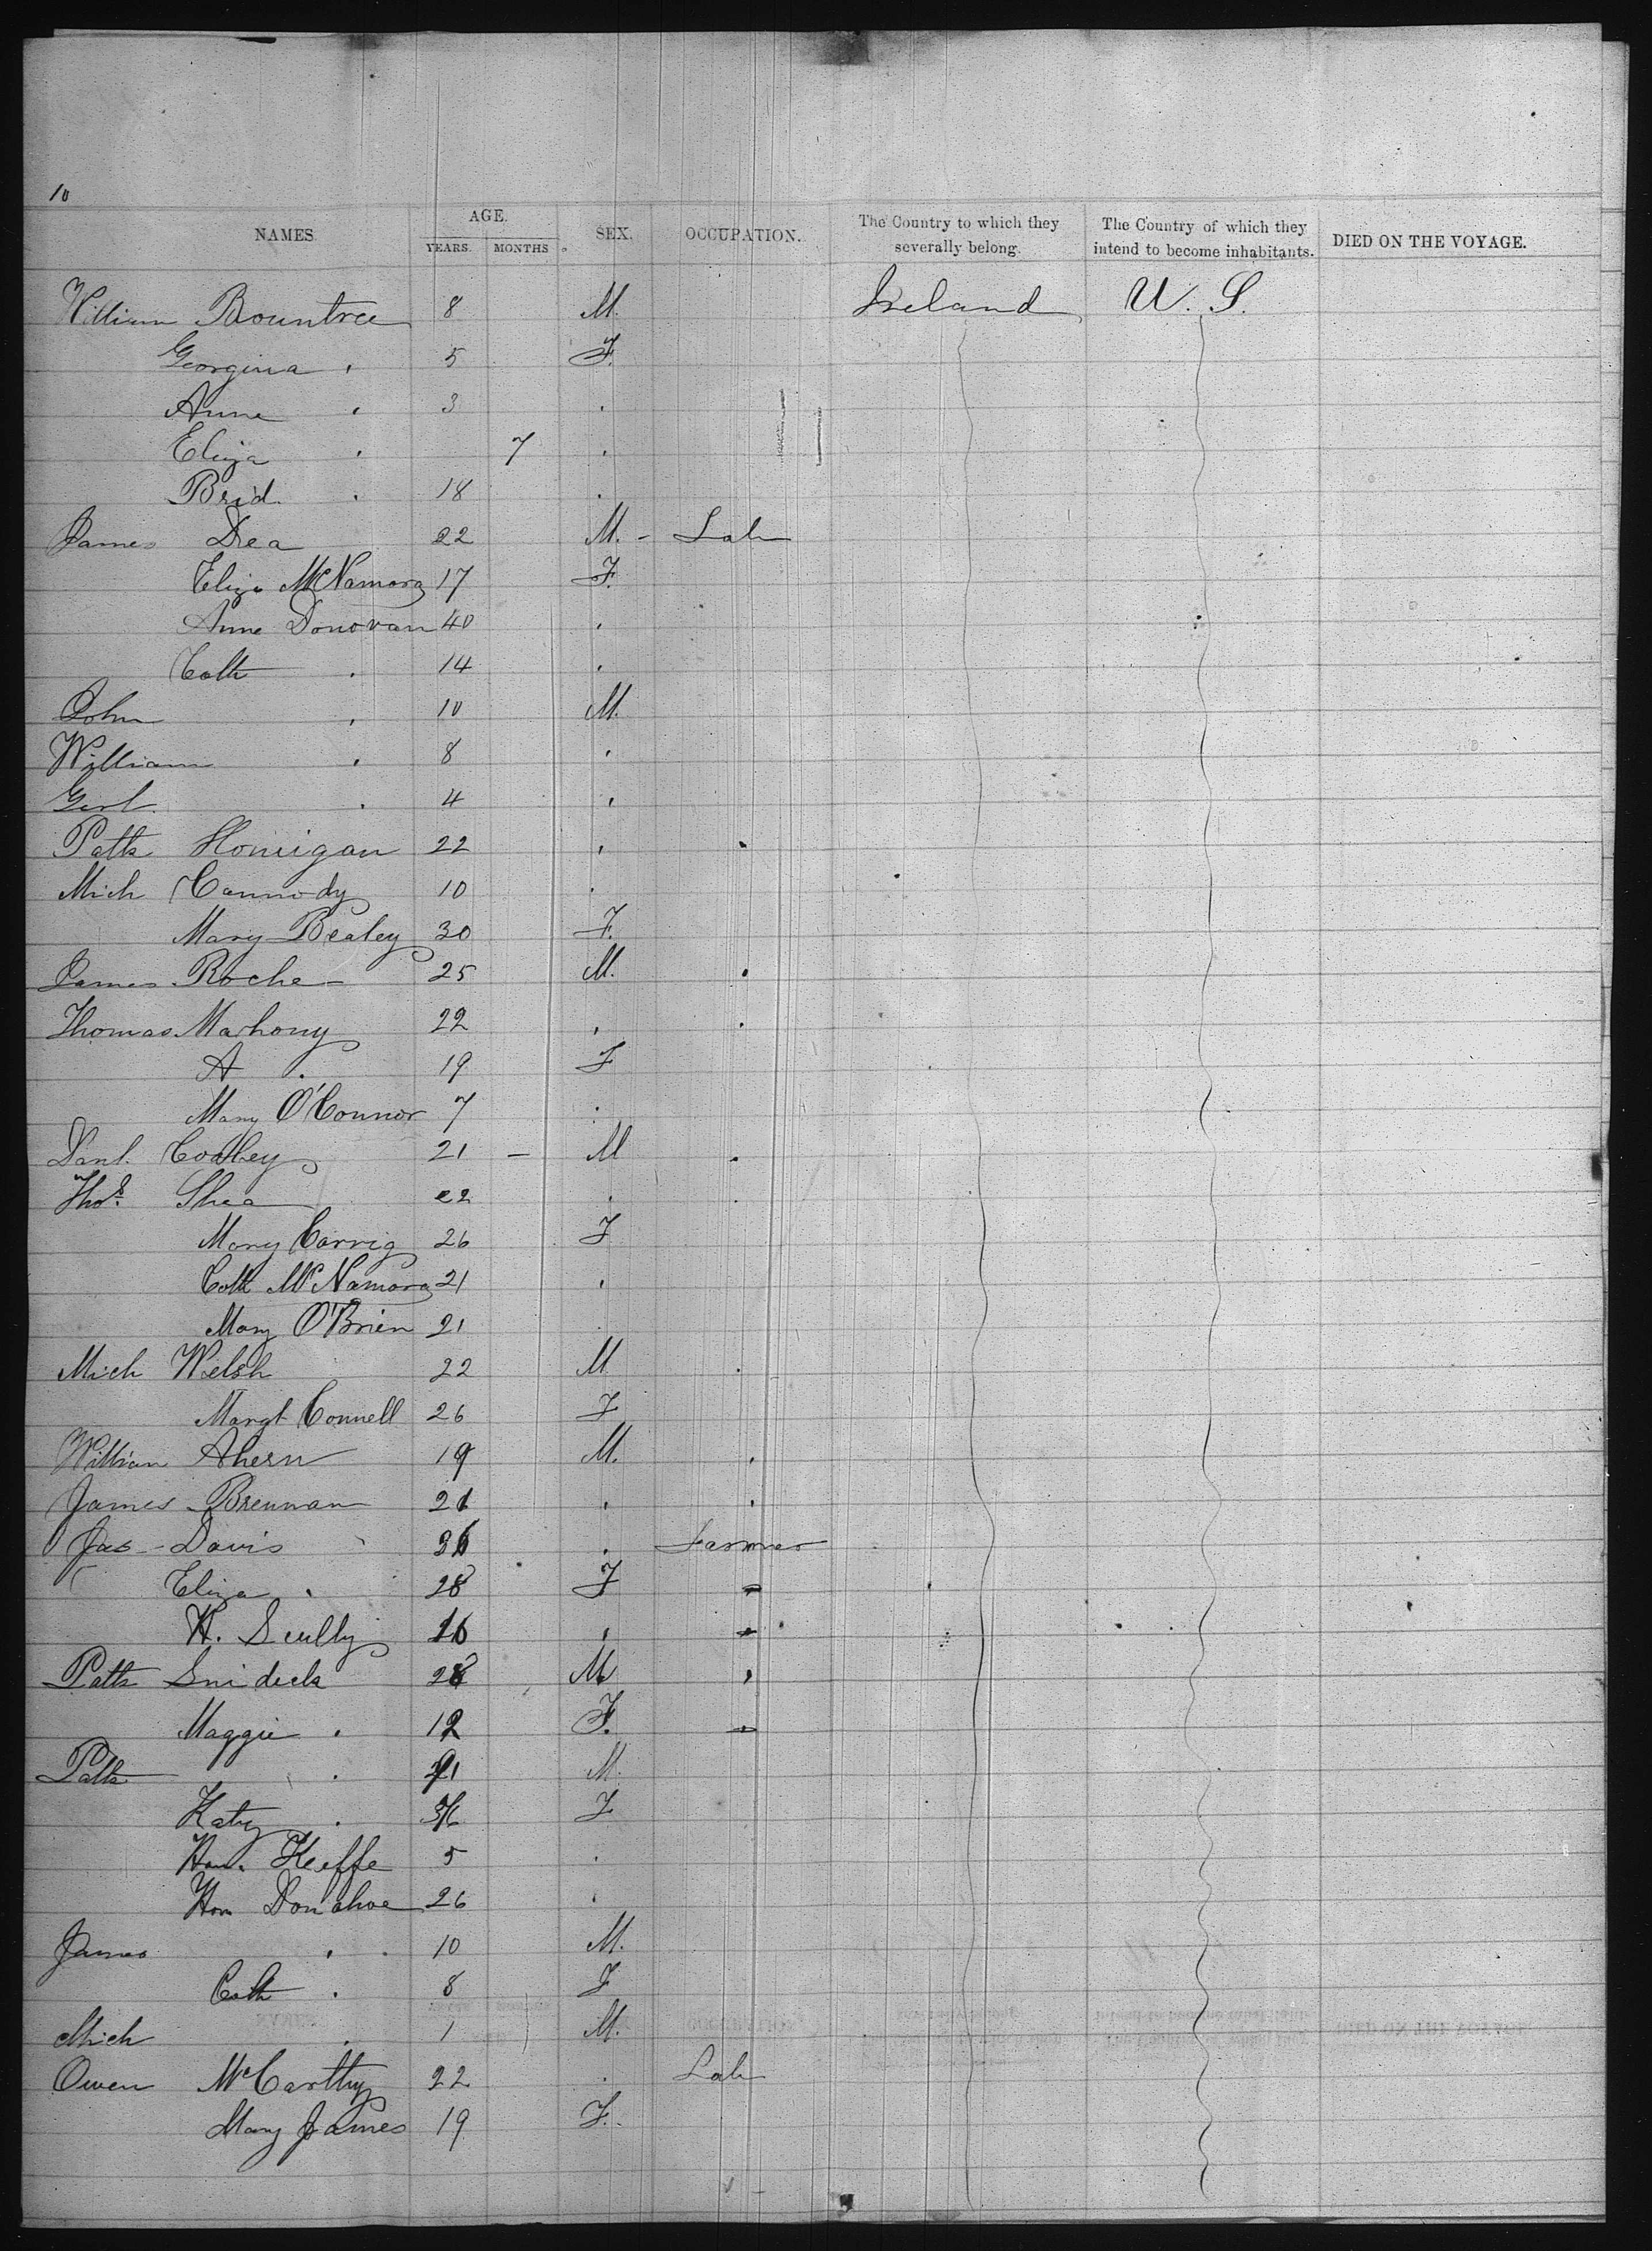 10
NAMES AGE. SEX. OCCUPATION. The Country to which they severally belong. The Country of which they intend to become inhabitants. DIED ON THE VOYAGE.
YEARS. MONTHS
William Bountree 8 M. Ireland U. S.
Georgina " 5 F.
Anne " 3 "
Eliza " 7 "
Brid. " 18 "
James Dea 22 M. - Lab
Eliza McNamara 17 F.
Anne Donovan 40 "
Cath " 14 "
John " 10 M.
William " 8 "
Girl " 4 "
Patk Honigan 22 " "
Mich Cannody 10 "
Mary Bealey 30 F.
James Roche 25 M. "
Thomas Mahony 22 " "
A " 19 F
Mary O'Connor 7 "
Danl. Cooney 21 - M "
Thos. Shea 22 " "
Mary Carrig 26 F
Cath McNamara 21 "
Mary O'Brien 21
Mich Welsh 22 M "
Margt Connell 26 F
William Ahern 19 M. "
James Brennan 21 " "
Jas - Davis 36 " Farmer
Eliza " 28 F "
H. Scully 16 " "
Patk Snideck 28 M "
Maggie " 12 F. "
Patk " M.
Katy " F
Han. Keffe 5 "
Hon Donahoe 26 "
James " 10 M.
Cath " 8 F
Mich " 1 M.
Owen McCarthy 22 " Lab
Mary James 19 F.